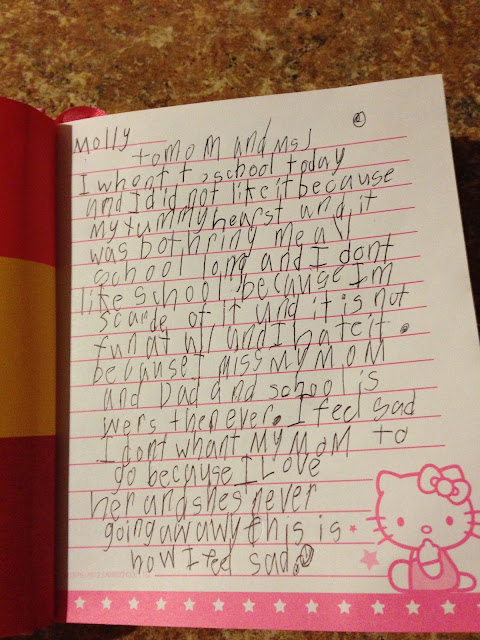 Molly
to MOM and MSJ
I whont to school today
and I did not like it because
my tummy hearst and it
was bothring me all
school long and I dont
like school because Im
scarde of it and it is not
fun at all and I hate it.
because I miss MY MOM
and Dad and school is
wers then ever. I feel sad
I dont whant MY MOM to
go because I Love
her and she's never
going awawy this is
how I feel sad.